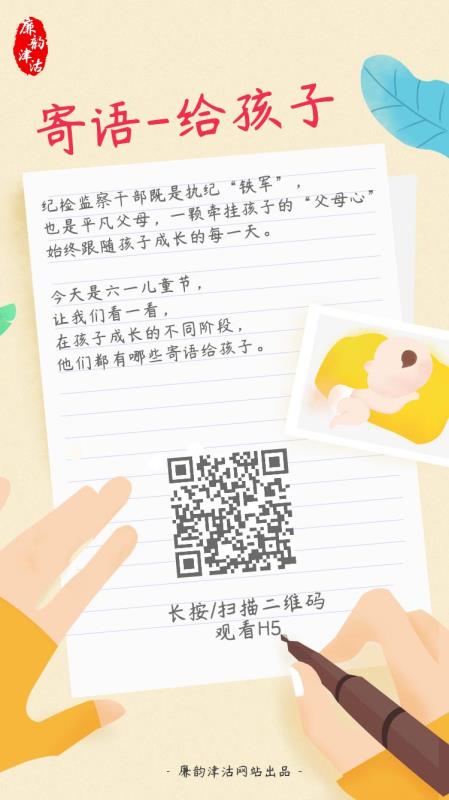 廉韵
津沽
寄语-给孩子
纪检监察干部既是执纪“铁军”，
也是平凡父母，一颗牵挂孩子的“父母心”
始终跟随孩子成长的每一天。
今天是六一儿童节，
让我们看一看，
在孩子成长的不同阶段，
他们都有哪些寄语给孩子。
长按/扫描二维码
观看H5
- 廉韵津沽网站出品 -